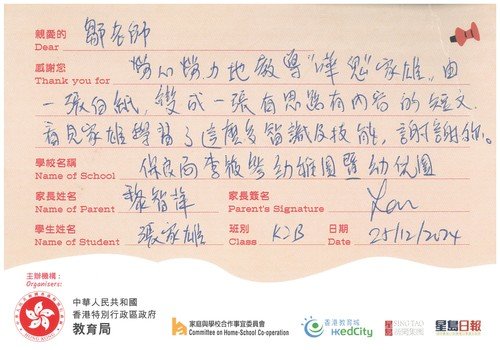 親愛的 鄒老師
Dear
感謝您 勞心勞力地教導"嘩鬼"家雄,由
Thank you for
一張白紙,變成一張有思路有內容的短文.
看見家雄學習了這麼多知識及技能,謝謝你。
學校名稱 保良局李俊駒幼稚園暨幼兒園
Name of School
家長姓名 黎智謹 家長簽名
Name of Parent Parent's Signature
學生姓名 張家雄 班別 K2B 日期 25/12/2024
Name of Student Class Date
主辦機構:
Organisers:
中華人民共和國
香港特別行政區政府
教育局
家庭與學校合作事宜委員會
Committee on Home-School Co-operation
香港教育城
HKedCity
星島 SING TAO
新聞集團
星島日報